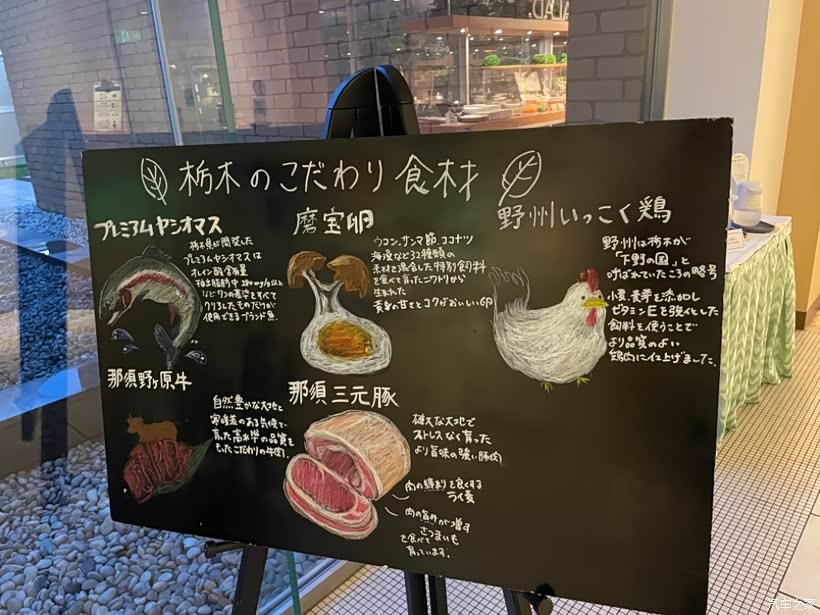 栃木のこだわり食材
プレミアムヤシオマス
栃木県が開発した
プレミアムヤシオマスは
オレイン酸含有量
など7つの基準をすべて
クリアしたものだけが
使用できるブランド魚.
磨宝卵
ウコン、サンマ節、ココナツ
海藻など32種類の
素材を混合した特別飼料
を食べて育ったニワトリから
生まれた
黄身の甘さとコクがおいしい卵
野州いっこく鶏
野州は栃木が
「下野の国」と
呼ばれていたころの略号
小麦、麦芽を添加し
ビタミンEを強化した
飼料を使うことで
より品質のよい
鶏肉に仕上げました.
那須野ヶ原牛
自然豊かな大地と
寒暖差のある気候で
育った高水準の品質を
もったこだわりの牛肉.
那須三元豚
雄大な大地で
ストレスなく育った
より旨味の強い豚肉
肉の締まりを良くする
ライ麦
肉の旨みが増す
さつまいも
を食べて
育っています.
汽车之家